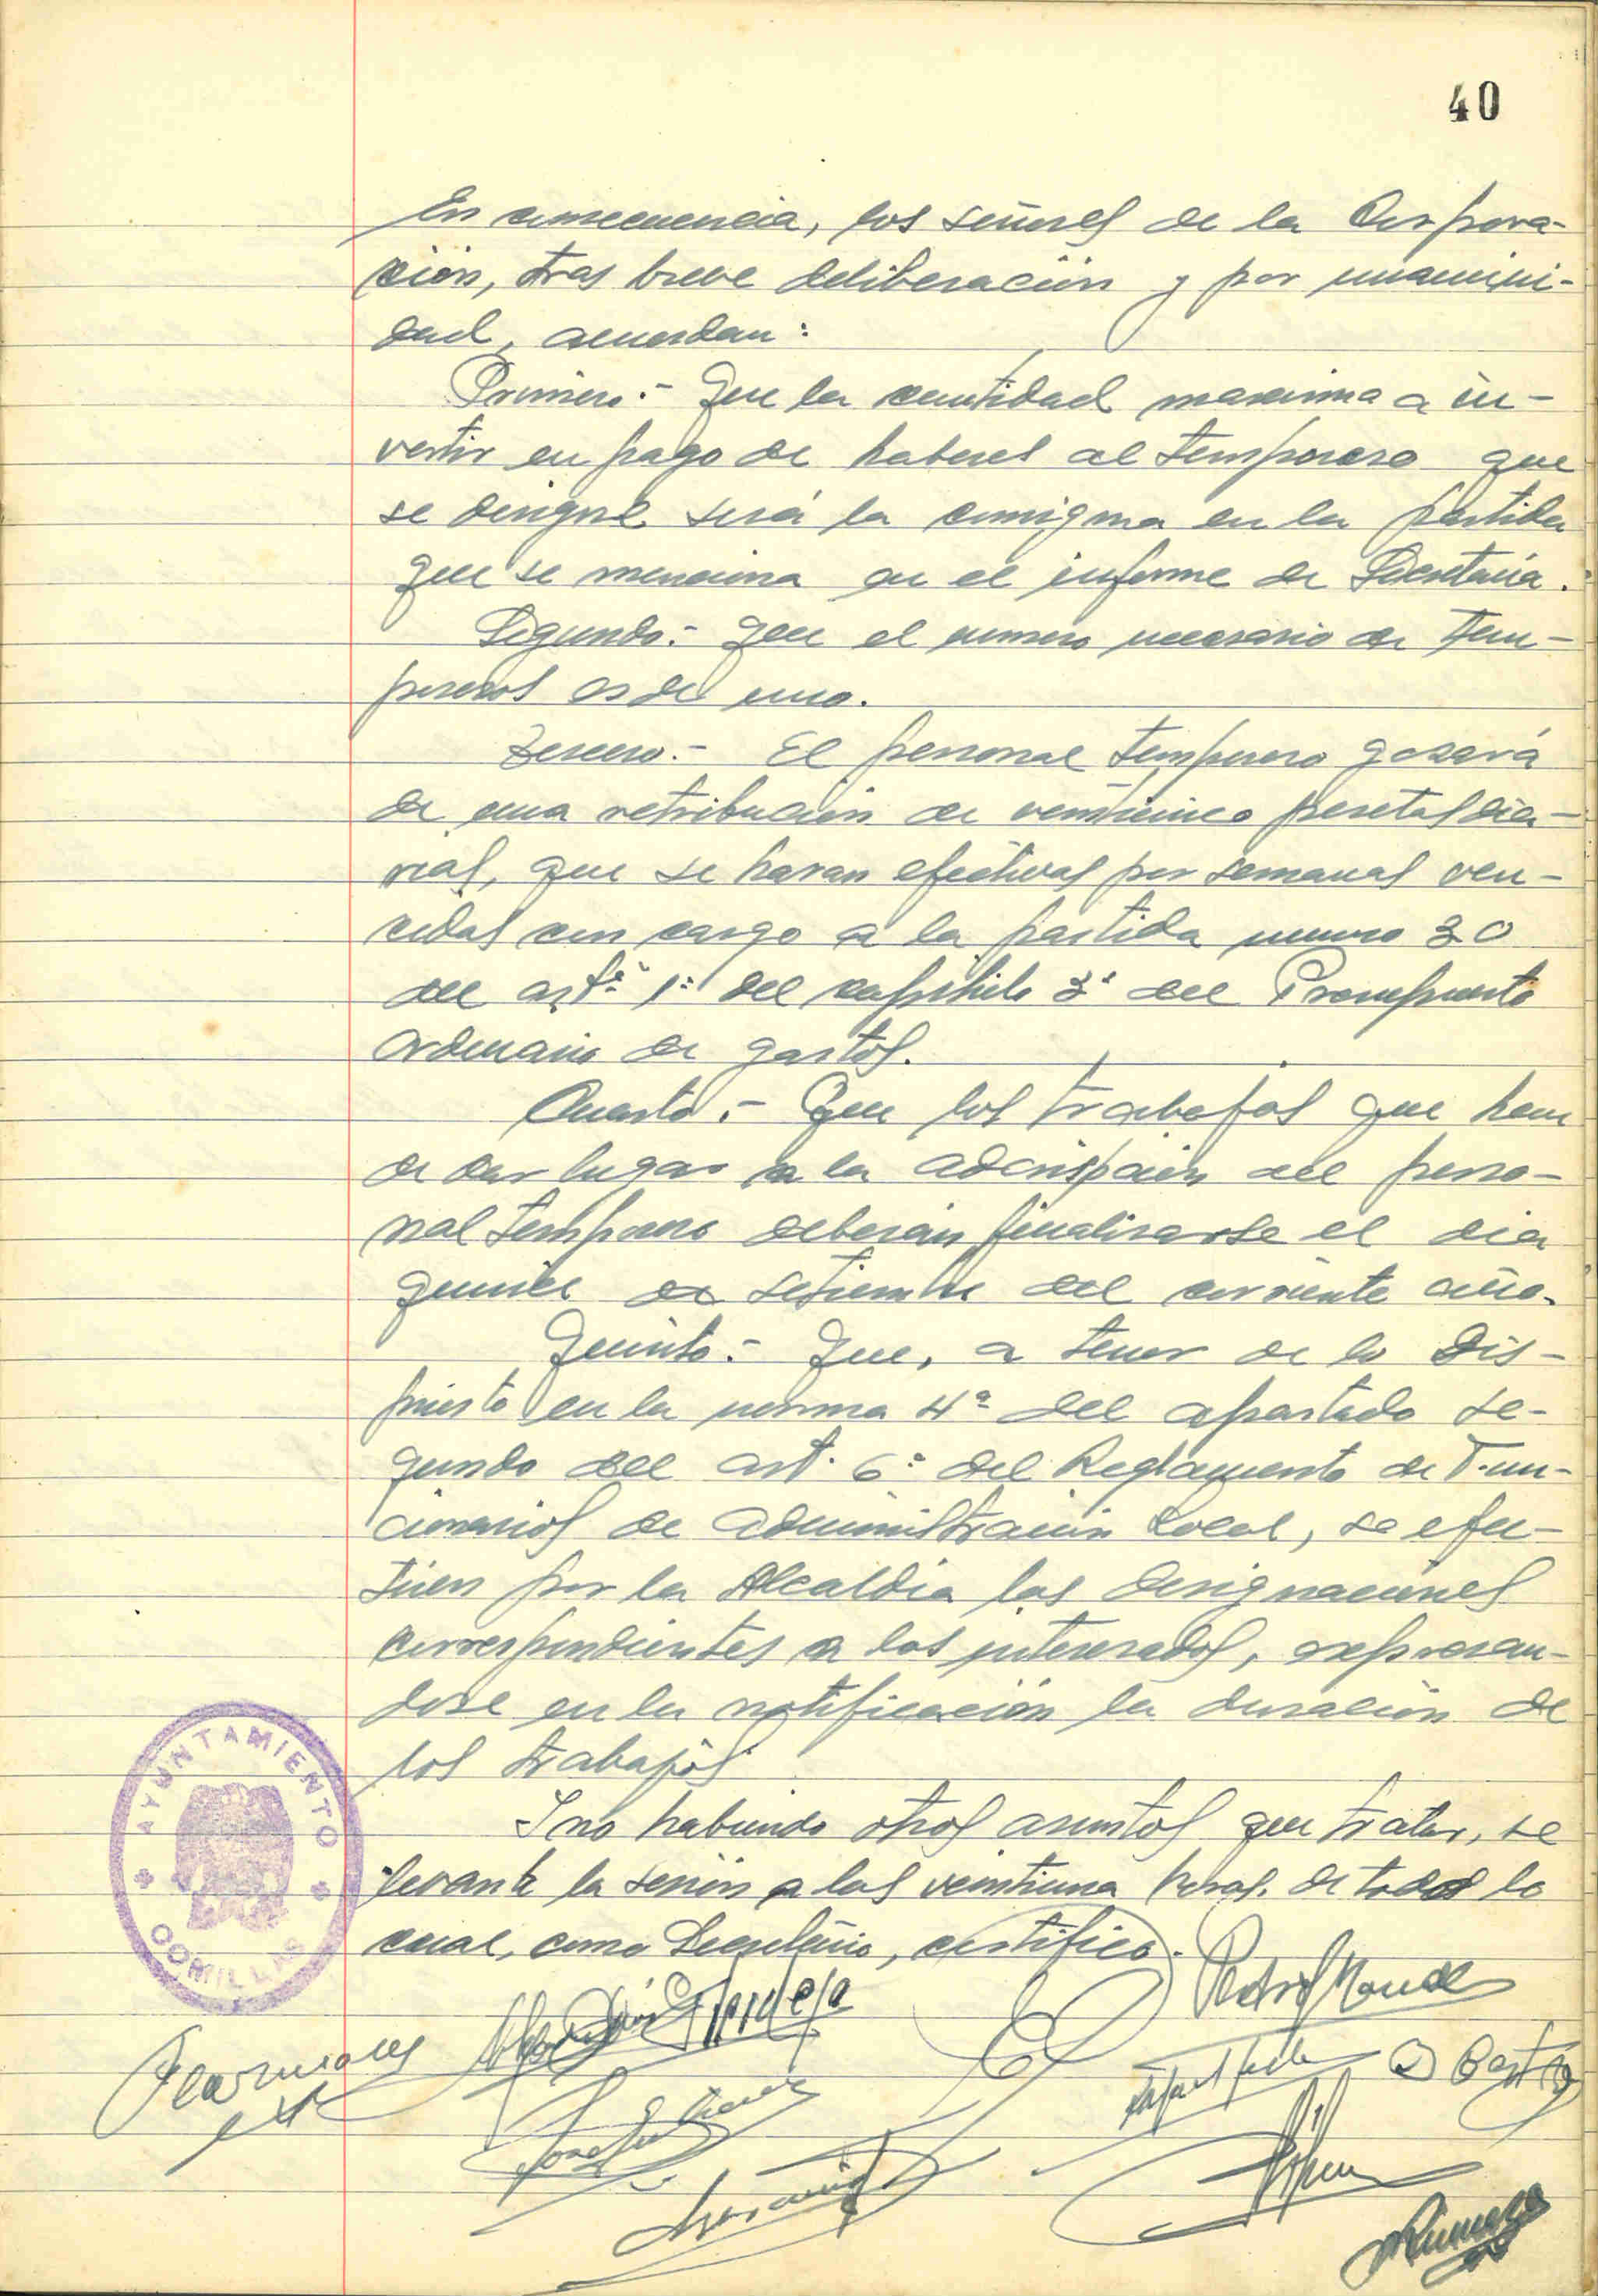 40
En consecuencia, los señores de la Corpora-
ción, tras breve deliberación y por unanimi-
dad, acuerdan:
Primero.- Que la cantidad maxima a in-
vertir en pago de haberes al temporero que
se designe será la consigna en la partida
que se menciona en el informe de Secretaria.
Segundo.- Que el numero necesario de tem-
poreros es de uno.
Tercero.- El personal temporero gozará
de una retribución de veinticinco pesetas dia-
rias, que se haran efectivas por semanas ven-
cidas con cargo a la partida numero 30
del artº 1º del capitulo 3º del Presupuesto
ordinario de gastos.
Cuarto.- Que los trabajos que han
de dar lugar a la adcripción del perso-
nal temporero deberán finalizarse el dia
quince de setiembre del corriente año.
Quinto.- Que, a tenor de lo dis-
puesto en la norma 4ª del apartado se-
gundo del art. 6º del Reglamento de Fun-
cionarios de Administración Local, se efec-
túen por la Alcaldia las designaciones
correspondientes a los interesados, expresan-
dose en la notificación la duración de
los trabajos.
Y no habiendo otros asuntos que tratar, se
levanta la sesión a las veintiuna horas. De todo lo
cual, como Secretario, certifico.
AYUNTAMIENTO
COMILLAS